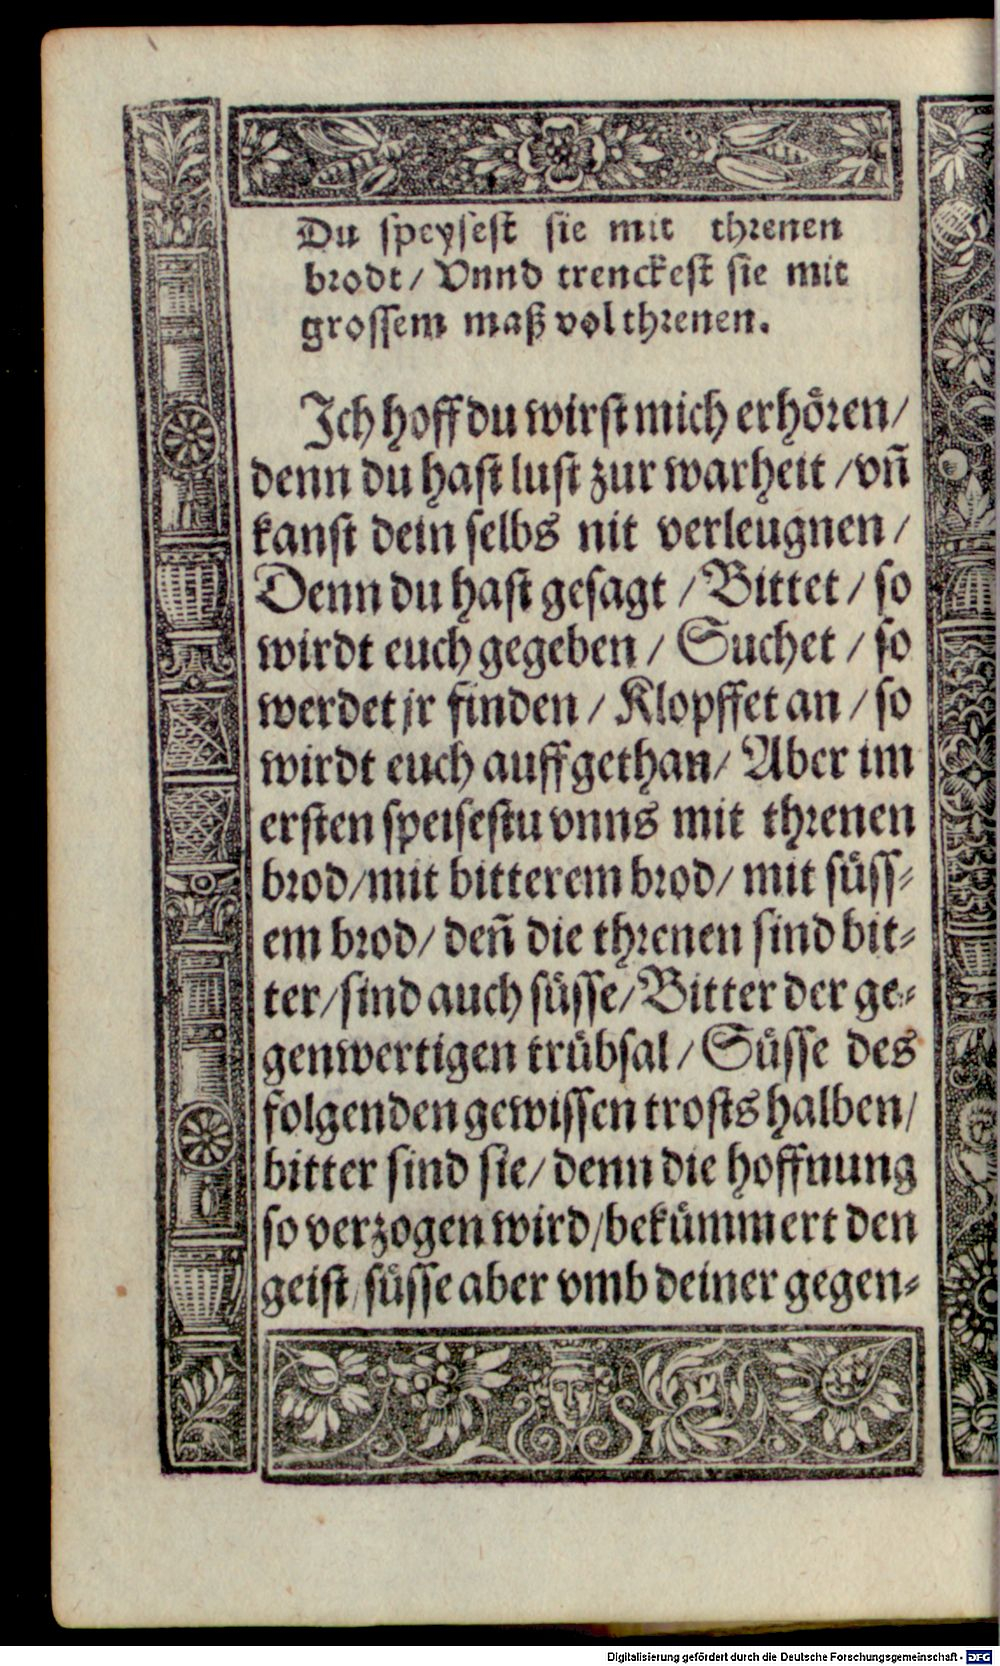 Du speysest sie mit threnen
brodt / Vnnd trenckest sie mit
grossem maß vol threnen.
Ich hoff du wirst mich erhören /
denn du hast lust zur warheit / vñ
kanst dein selbs nit verleugnen /
Denn du hast gesagt / Bittet / so
wirdt euch gegeben / Suchet / so
werdet jr finden / Klopffet an / so
wirdt euch auffgethan / Aber im
ersten speisestu vnns mit threnen
brod / mit bitterem brod / mit süss-
em brod / deñ die threnen sind bit-
ter / sind auch süsse / Bitter der ge-
genwertigen trübsal / Süsse des
folgenden gewissen trosts halben /
bitter sind sie / denn die hoffnung
so verzogen wird / bekümmert den
geist / süsse aber vmb deiner gegen-
Digitalisierung gefördert durch die Deutsche Forschungsgemeinschaft - DFG